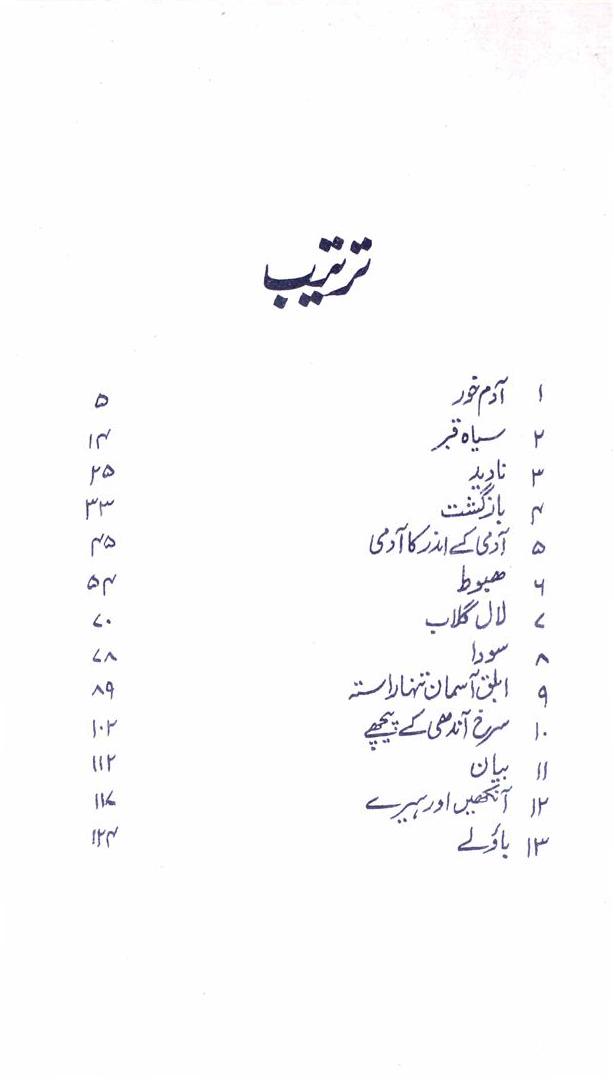 ترتیب
۱ آدم خور ۵
۲ سیاہ قبر ۱۴
۳ نادید ۲۵
۴ بازگشت ۳۳
۵ آدمی کے اندر کا آدمی ۴۵
۶ ھبوط ۵۴
۷ لال گلاب ۷۰
۸ سودا ۷۸
۹ ابلق آسمان تنہا راستہ ۸۹
۱۰ سرخ آندھی کے پیچھے ۱۰۲
۱۱ بیان ۱۱۲
۱۲ آنکھیں اور ہیرے ۱۱۷
۱۳ باؤلے ۱۲۴